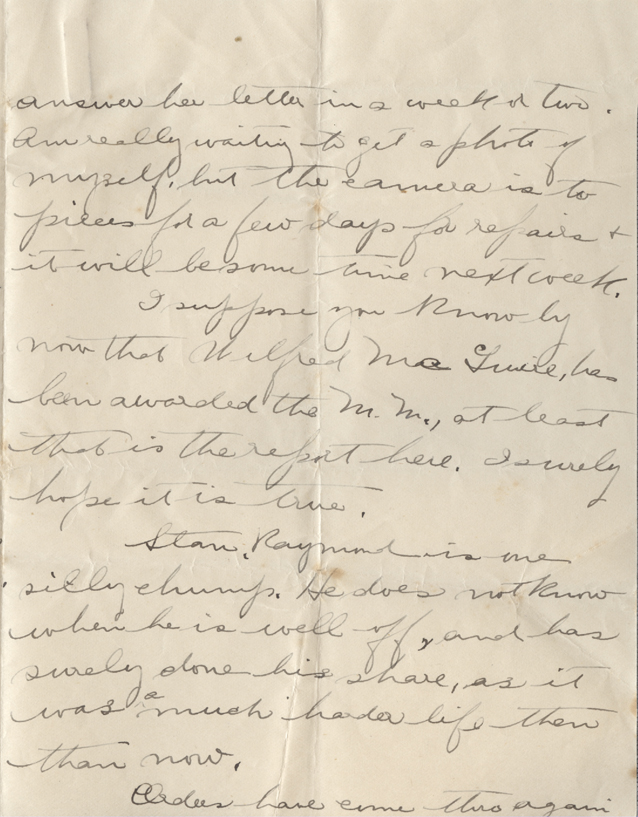 answer her letter in a week or two.
Am really waiting to get a photo of
myself, but the camera is to
pieces for a few days for repairs +
it will be some time next week.
I suppose you know by
now that Wilfred Mac Guire, has
been awarded the M. M., at least
that is the report here. I surely
hope it is true.
Stan. Raymond is one
silly chump. He does not know
when he is well off, and has
surely done his share, as it
was a much harder life then
than now.
Orders have come thro again